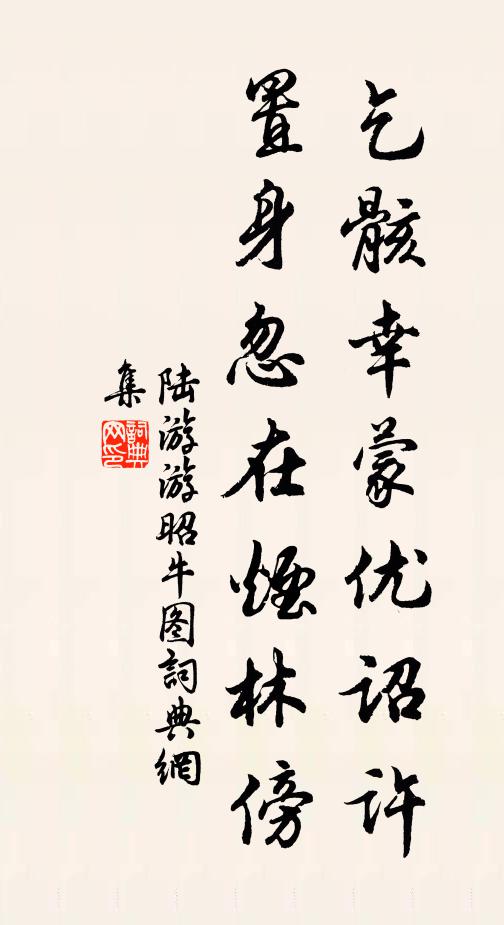 乞骸幸蒙优诏许
置身忽在烟林傍
陆游游昭牛图詞典網
集
詞典网印